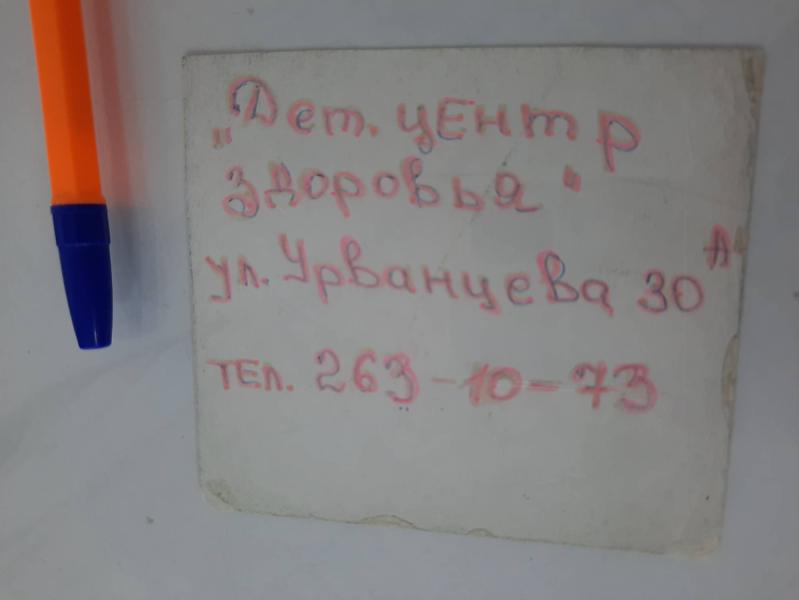 "Дет. центр
здоровья"
ул. Урванцева 30 А
тел. 263-10-73